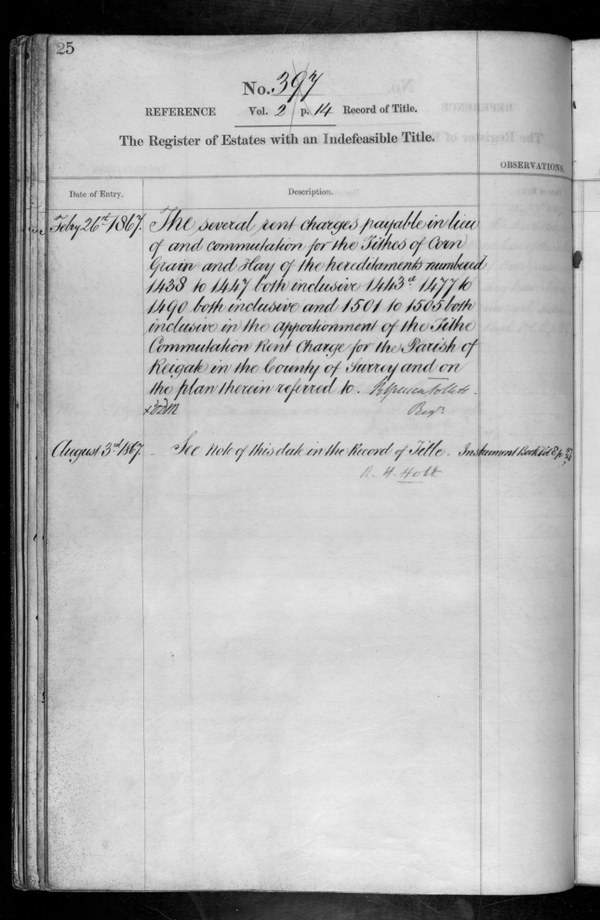 25
No. 397
REFERENCE Vol. 2 p. 14 Record of Title.
The Register of Estates with an Indefeasible Title.
OBSERVATIONS.
Date of Entry.
Description.
Feby 26th 1867. The several rent charges payable in lieu
of and commutation for the Tithes of Corn
Grain and Hay of the hereditaments numbered
1438 to 1447 both inclusive 1443a 1477 to
1490 both inclusive and 1501 to 1505 both
inclusive in the apportionment of the Tithe
Commutation Rent Charge for the Parish of
Reigate in the County of Surrey and on
the plan therein referred to.
Regr
August 3rd 1867. See Note of this date in the Record of Title. Instrument Book Vol
R. H. Holt